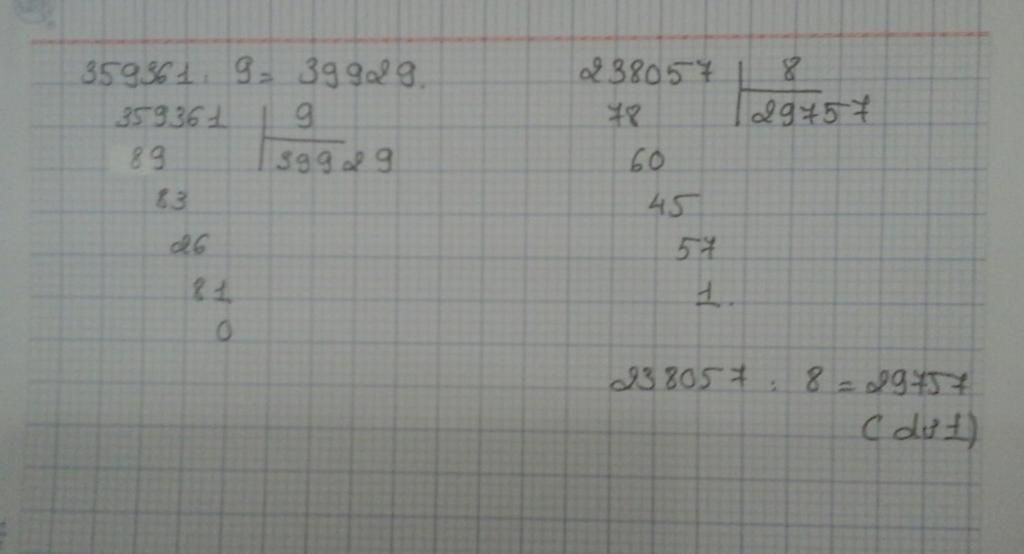 359361 : 9 = 39929.
359361 | 9
89 | 39929
83
26
81
0
238057 | 8
78 | 29757
60
45
57
1.
238057 : 8 = 29757
(dư 1)